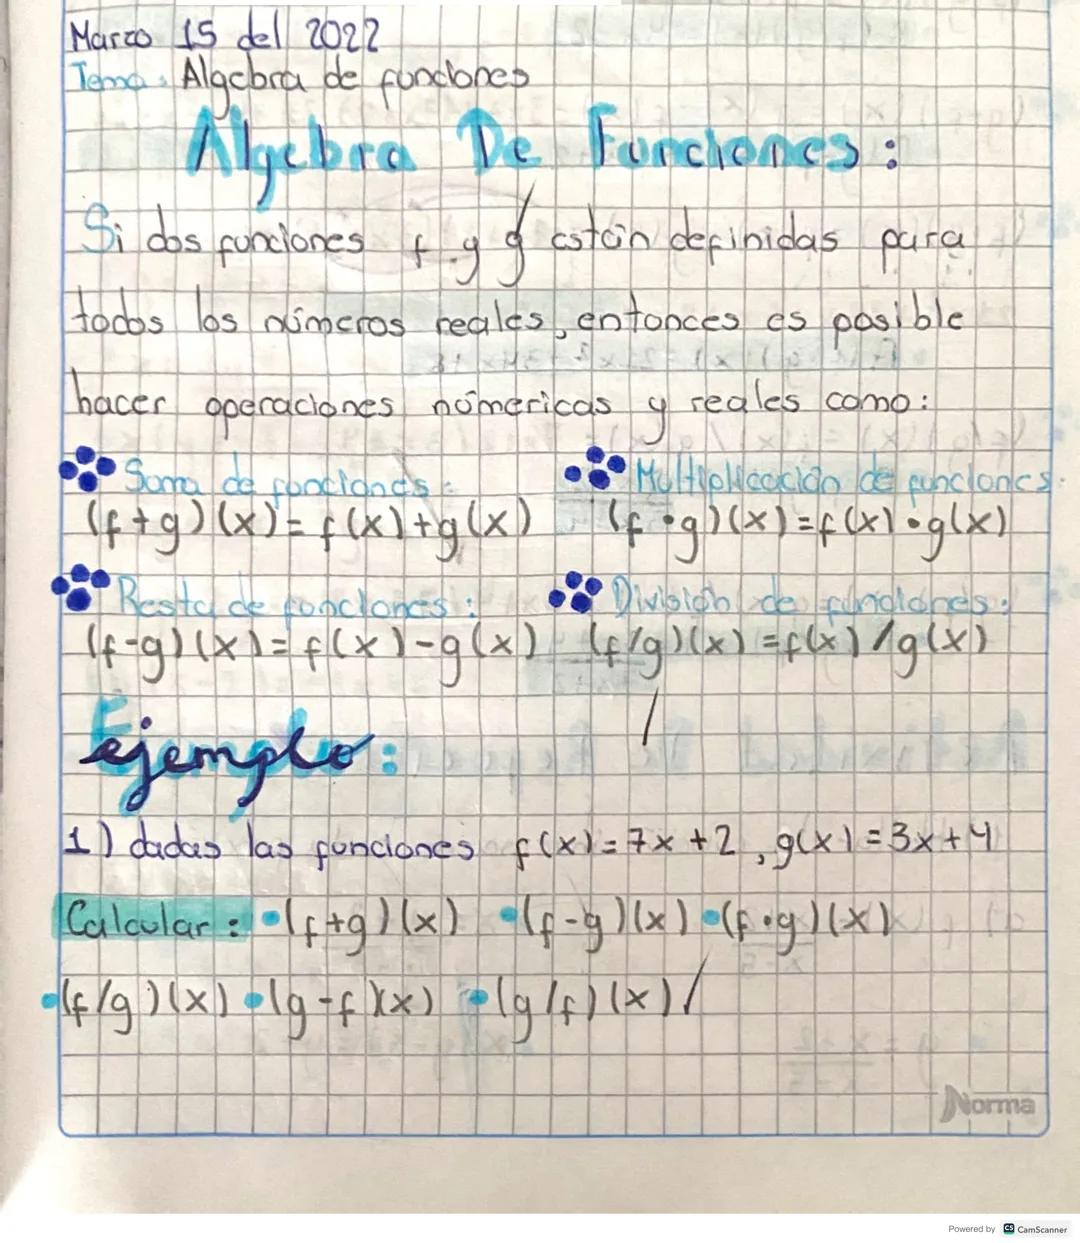 Marzo 15 del 2022
Tema: Algebra de funciones
Algebra De Funciones:
Si dos funciones f y g están definidas para
todos los números reales, entonces es posible
hacer operaciones númericas y reales como:
Suma de funciones:
(f+g)(x)=f(x)+g(x)
Multiplicación de funciones:
(f•g)(x)=f(x)•g(x)
Resta de funciones:
(f-g)(x)=f(x)-g(x)
División de funciones:
(f/g)(x)=f(x)/g(x)
Ejemplo:
1) dadas las funciones f(x)=7x+2, g(x)=3x+4
Calcular: •(f+g)(x) •(f-g)(x) •(f•g)(x)
•(f/g)(x) •(g-f)(x) •(g/f)(x)/
Norma
Powered by CS CamScanner